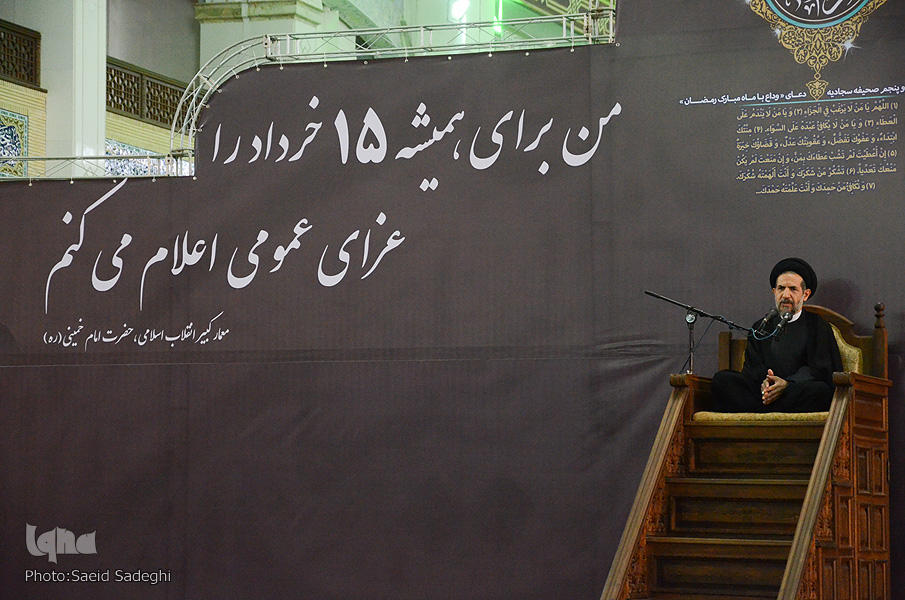 من برای همیشه ۱۵ خرداد را
عزای عمومی اعلام می کنم
معمار کبیر انقلاب اسلامی، حضرت امام خمینی (ره)
و پنجم صحیفه سجادیه دعای «وداع با ماه مبارک رمضان»
(۱) اللَّهُمَّ يَا مَنْ لَا يَرْغَبُ فِي الْجَزَاءِ (۲) وَ يَا مَنْ لَا يَنْدَمُ عَلَى
الْعَطَاءِ (۳) وَ يَا مَنْ لَا يُكَافِئُ عَبْدَهُ عَلَى السَّوَاءِ. (۴) مِنَّتُكَ
ابْتِدَاءٌ، وَ عَفْوُكَ تَفَضُّلٌ، وَ عُقُوبَتُكَ عَدْلٌ، وَ قَضَاؤُكَ خِيَرَةٌ
(۵) إِنْ أَعْطَيْتَ لَمْ تَشُبْ عَطَاءَكَ بِمَنٍّ، وَ إِنْ مَنَعْتَ لَمْ يَكُنْ
مَنْعُكَ تَعَدِّياً. (۶) تَشْكُرُ مَنْ شَكَرَكَ وَ أَنْتَ أَلْهَمْتَهُ شُكْرَكَ.
(۷) وَ تُكَافِئُ مَنْ حَمِدَكَ وَ أَنْتَ عَلَّمْتَهُ حَمْدَكَ...
Iqna
Photo:Saeid Sadeghi